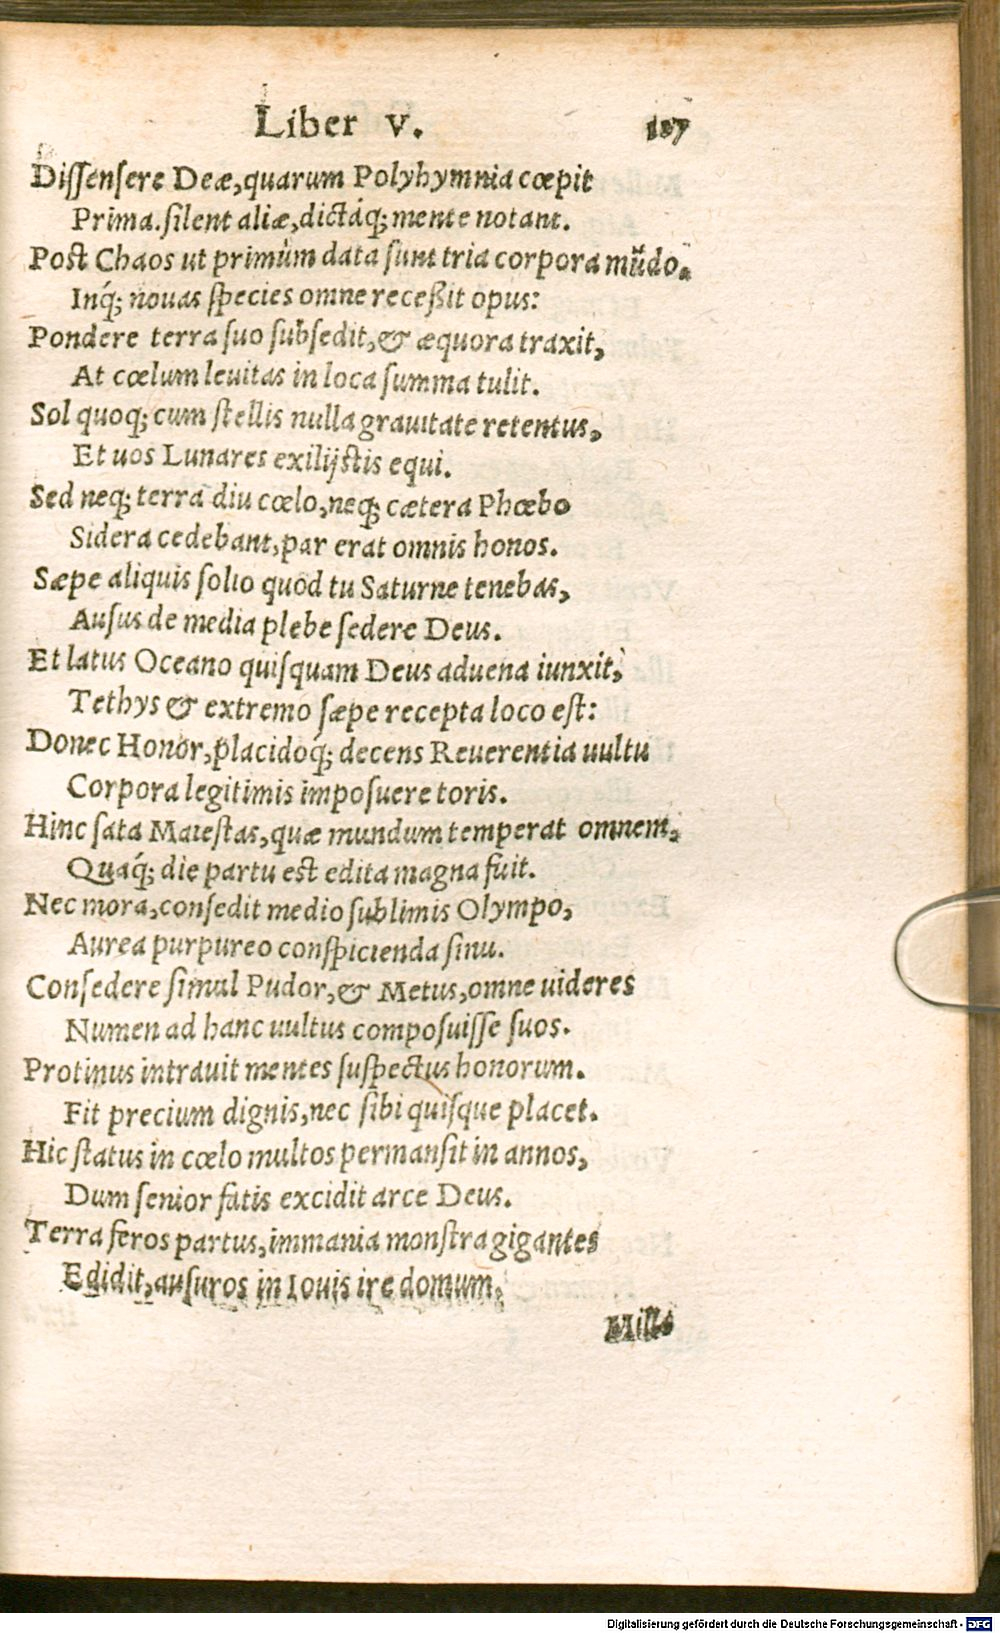 Liber V. 107
Diſſenſere Deæ, quarum Polyhymnia cœpit
Prima. ſilent aliæ, dictáq; mente notant.
Poſt Chaos ut primùm data ſunt tria corpora mũdo,
Inq́; nouas ſpecies omne receßit opus:
Pondere terra ſuo ſubſedit, & æquora traxit,
At cœlum leuitas in loca ſumma tulit.
Sol quoq; cum ſtellis nulla grauitate retentus,
Et uos Lunares exilijſtis equi.
Sed neq; terra diu cœlo, neq; cætera Phœbo
Sidera cedebant, par erat omnis honos.
Sæpe aliquis ſolio quod tu Saturne tenebas,
Auſus de media plebe ſedere Deus.
Et latus Oceano quiſquam Deus aduena iunxit,
Tethys & extremo ſæpe recepta loco eſt:
Donec Honor, placidoq́; decens Reuerentia uultu
Corpora legitimis impoſuere toris.
Hinc ſata Maieſtas, quæ mundum temperat omnem,
Quaq́; die partu est edita magna fuit.
Nec mora, conſedit medio ſublimis Olympo,
Aurea purpureo conſpicienda ſinu.
Conſedere ſimul Pudor, & Metus, omne uideres
Numen ad hanc uultus compoſuiſſe ſuos.
Protinus intrauit mentes ſuſpectus honorum.
Fit precium dignis, nec ſibi quiſque placet.
Hic ſtatus in cœlo multos permanſit in annos,
Dum ſenior fatis excidit arce Deus.
Terra feros partus, immania monſtra gigantes
Edidit, auſuros in Iouis ire domum.
Mille
Digitalisierung gefördert durch die Deutsche Forschungsgemeinschaft - DFG